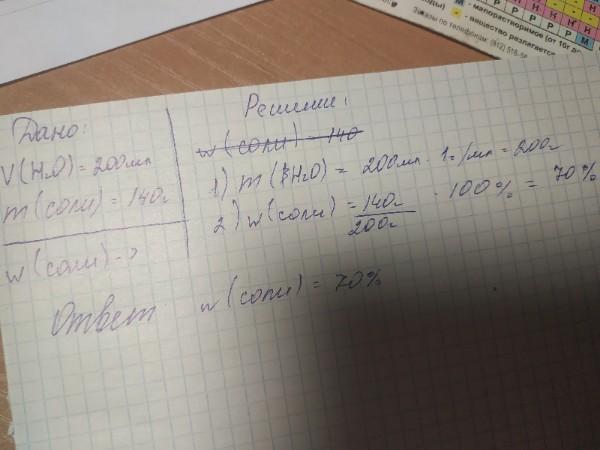 М - малорастворимое (от 10г до
- вещество разлагается
Заказы по телефонам: (812) 516-
Дано:
V(H₂O) = 200мл
m(соли) = 140г
w(соли) - ?
Решение:
w(соли) = 140
1) m(H₂O) = 200мл · 1г/мл = 200г
2) w(соли) = 140г / 200г · 100% = 70%
Ответ w(соли) = 70%